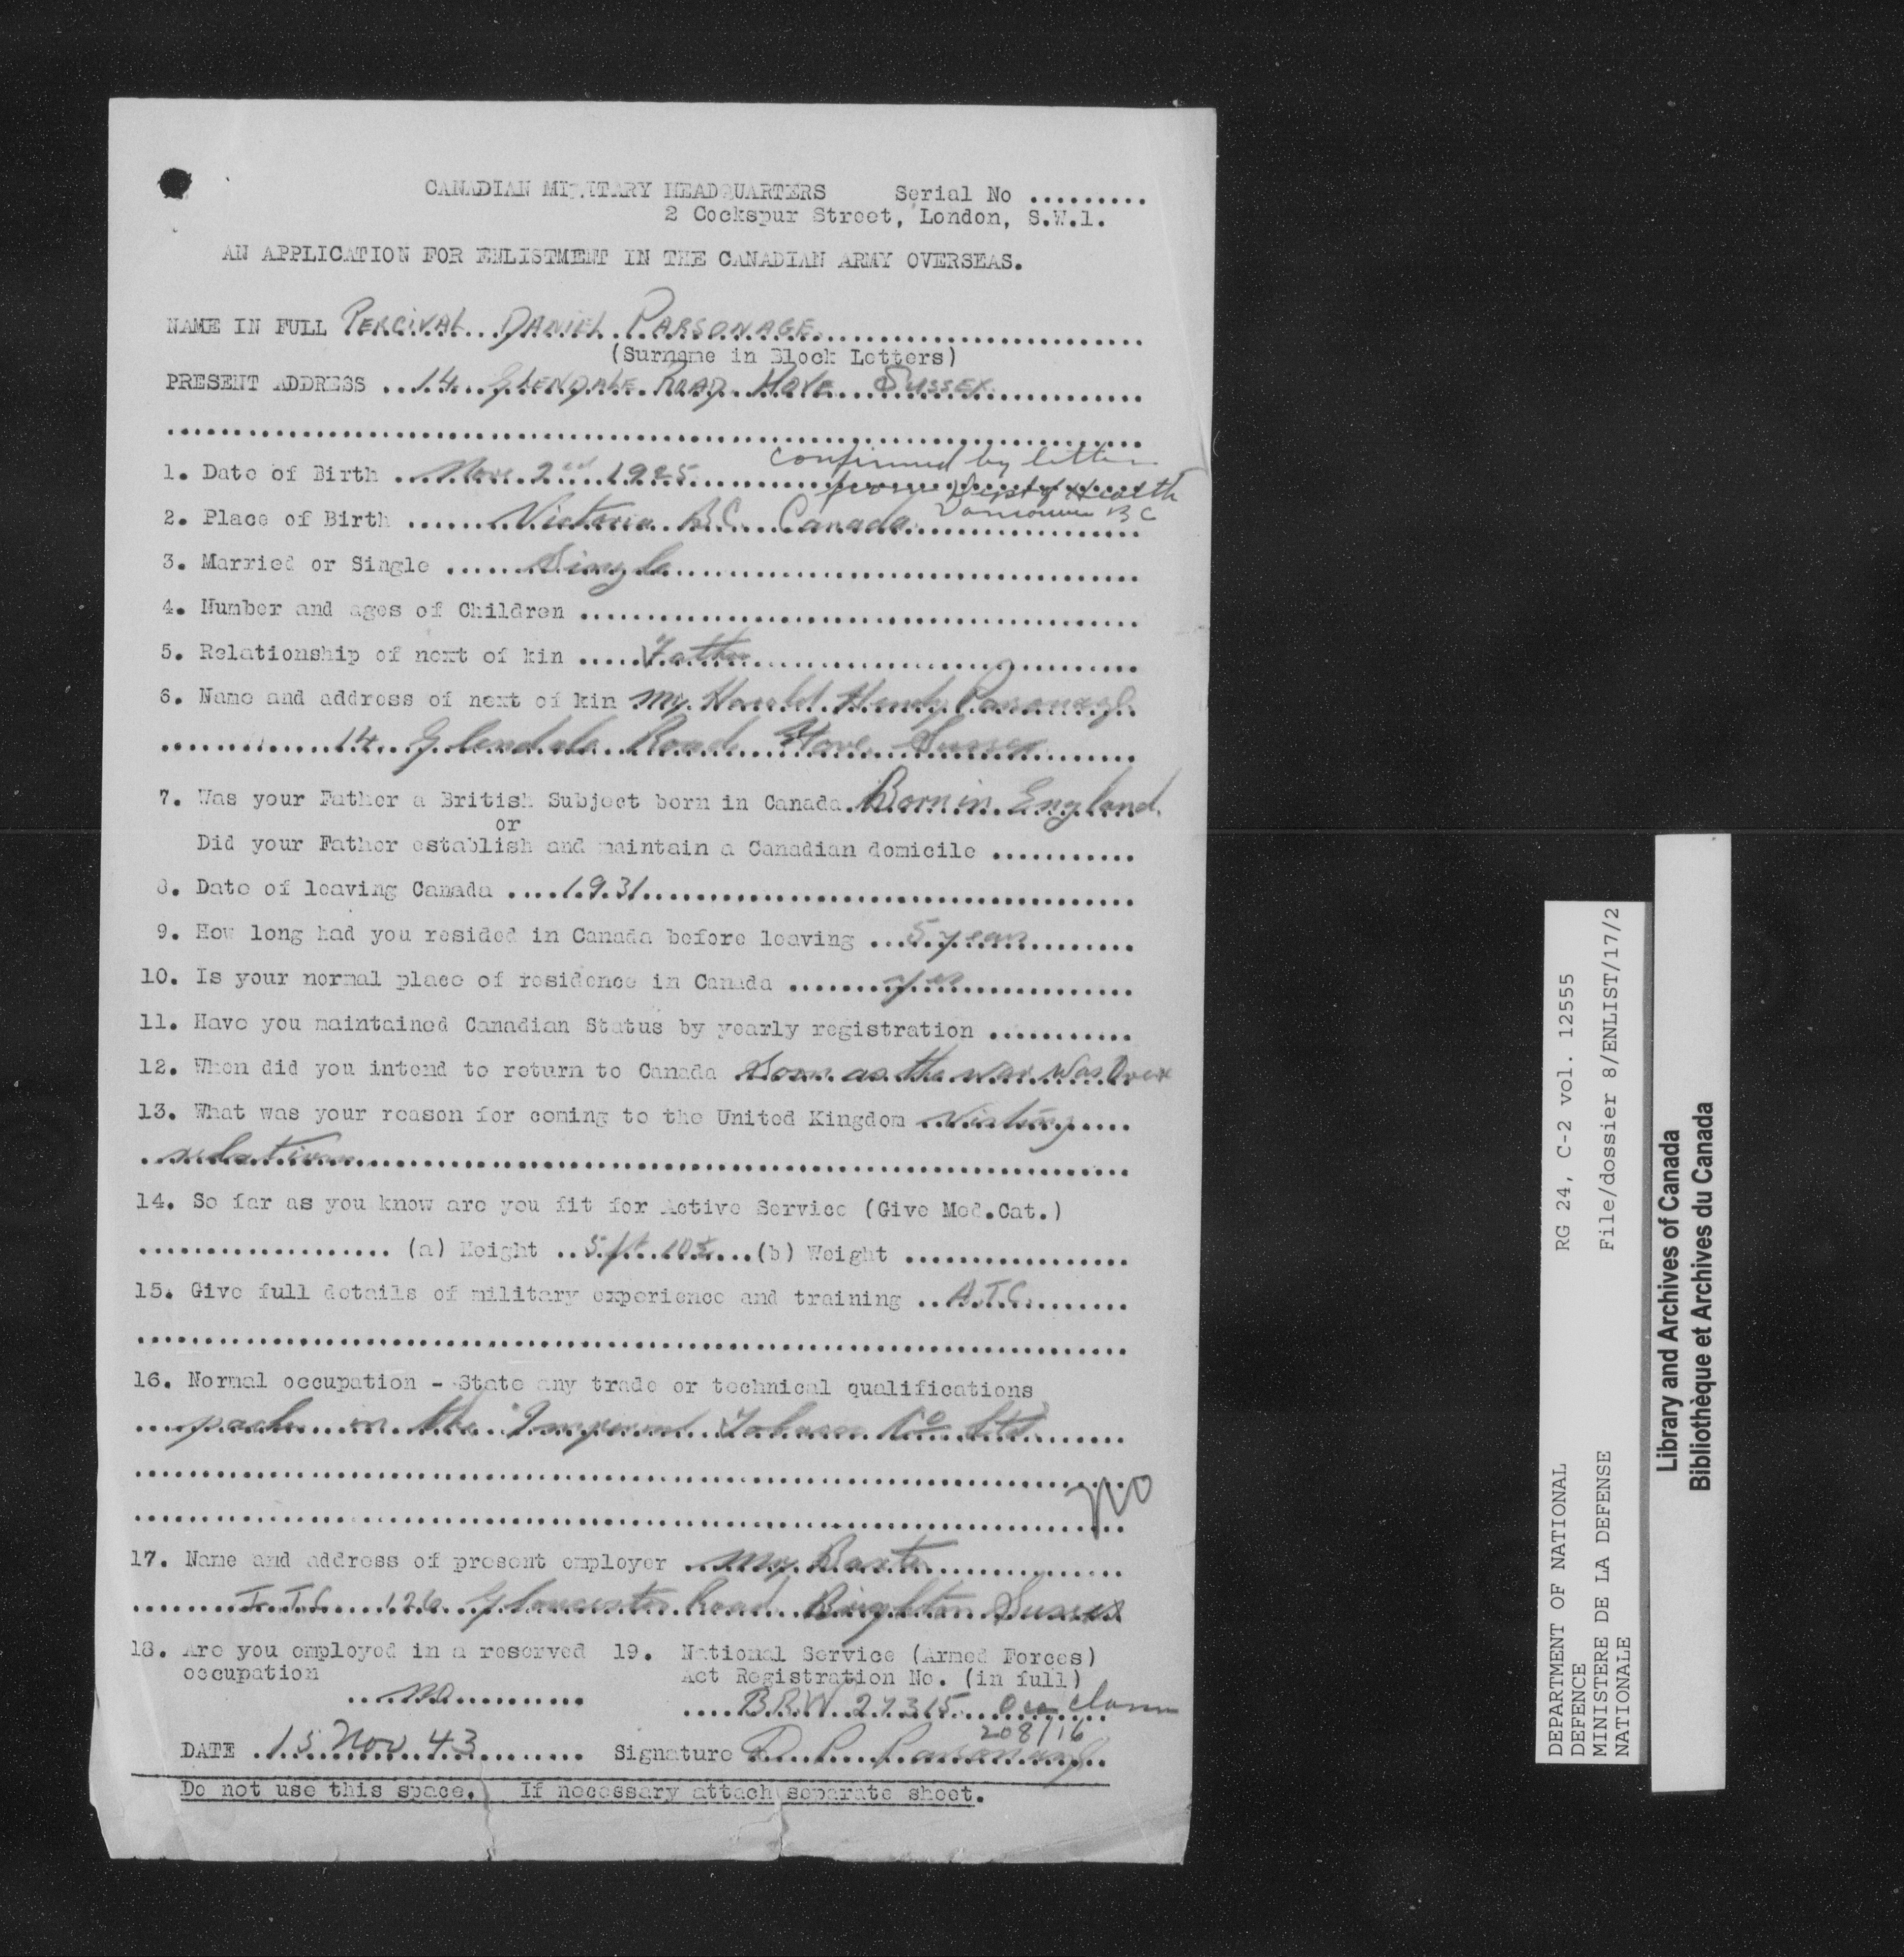 CANADIAN MILITARY HEADQUARTERS Serial No .........
2 Cockspur Street, London, S.W.1.
AN APPLICATION FOR ENLISTMENT IN THE CANADIAN ARMY OVERSEAS.
NAME IN FULL PERCIVAL DANIEL PARSONAGE
(Surname in Block Letters)
PRESENT ADDRESS 14 GLENDALE ROAD HOVE SUSSEX
confirmed by letter
1. Date of Birth Nov 2nd 1925
from Dept of Health
Vancouver BC
2. Place of Birth Victoria B.C. Canada
3. Married or Single Single
4. Number and ages of Children
5. Relationship of next of kin Father
6. Name and address of next of kin Mr. Harold Henly Parsonage
14 Glendale Road Hove Sussex
7. Was your Father a British Subject born in Canada Born in England
or
Did your Father establish and maintain a Canadian domicile
8. Date of leaving Canada 1931
9. How long had you resided in Canada before leaving 5 years
10. Is your normal place of residence in Canada yes
11. Have you maintained Canadian Status by yearly registration
12. When did you intend to return to Canada Soon as the war was Over
13. What was your reason for coming to the United Kingdom Visting
relatives
14. So far as you know are you fit for Active Service (Give Med.Cat.)
(a) Height 5 ft 10½ (b) Weight
15. Give full details of military experience and training A.T.C.
16. Normal occupation - State any trade or technical qualifications
packer in the Imperial Tobacco Co Ltd
NO
17. Name and address of present employer Mr. Baxter
I.T.C. 126 Gloucester Road Brighton Sussex
18. Are you employed in a reserved occupation no
19. National Service (Armed Forces)
Act Registration No. (in full)
BRW 27315
208/16
DATE 15 Nov 43 Signature D. P. Parsonage
Do not use this space. If necessary attach separate sheet.
DEPARTMENT OF NATIONAL DEFENCE
MINISTERE DE LA DEFENSE NATIONALE
RG 24, C-2 vol. 12555
File/dossier 8/ENLIST/17/2
Library and Archives of Canada
Bibliothèque et Archives du Canada